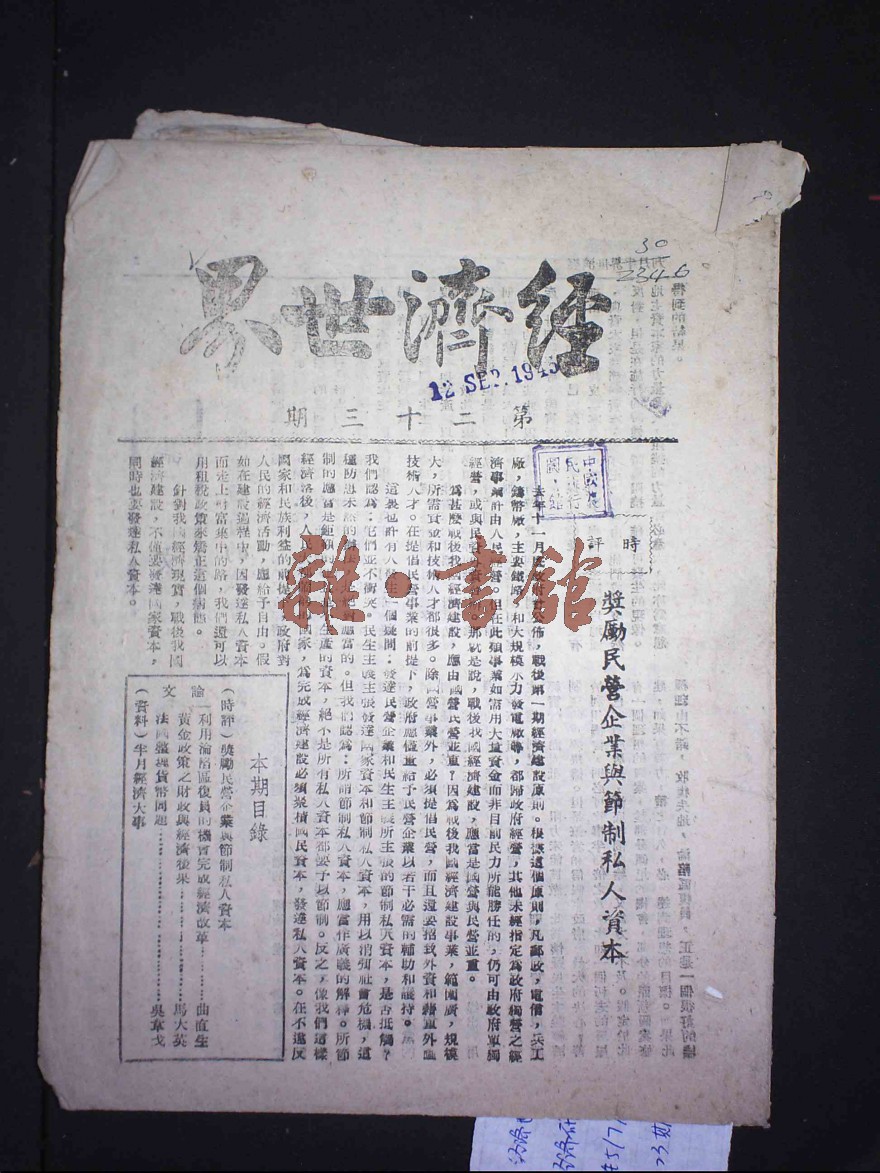 經濟世界
12 SEP.1945
第二十三期
30
2346
中國農
民銀行
時評
獎勵民營企業與節制私人資本
去年十一月底政府曾公佈，戰後第一期經濟建設原則。根據這個原則，凡郵政，電信，兵工
廠，鑄幣廠，主要鐵路，和大規模水力發電廠等，都歸政府經營，其他未經指定為政府獨營之經
濟事業計由人民經營。但在此類事業如需用大量資金而非目前民力所能勝任的，仍可由政府單獨
經營，或與民資外資合辦。那就是說，戰後我國經濟建設，應當是國營與民營並重。
為甚麼戰後我國經濟建設，應由國營民營並重？因為戰後我國經濟建設事業，範圍廣，規模
大，所需資金和技術人才都很多。除國營事業外，必須提倡民營，而且還要招致外資和藉重外國
技術人才。在提倡民營事業的前提下，政府應僅量給予民營企業以若干必需的輔助和護持。
這裏也許有人發生一個疑問：發達民營企業和民生主義所主張的節制私人資本，是否抵觸？
我們認為：它們並不衝突。民生主義主張發達國家資本和節制私人資本，用以消弭社會危機，這
種防患未然的辦法，是絕對應當的。但我們認為：所謂節制私人資本，應當作廣義的解釋。所節
制的應當是壟斷的，不生產的資本，絕不是所有私人資本都要予以節制。反之，像我們這樣
經濟落後，人民貧窮的國家，為完成經濟建設必須累積國民資本，發達私人資本。在不違反
國家和民族利益的前提下，政府對
人民的經濟活動，應給予自由。假
如在建設過程中，因發達私人資本
而走上財富集中的路，我們還可以
用租稅政策來矯正這個病態。
針對我國經濟現實，戰後我國
經濟建設，不僅要發達國家資本，
同時也要發達私人資本。
本期目錄
（時評）獎勵民營企業與節制私人資本
論文
利用淪陷區復員的機會完成經濟改革………曲直生
黃金政策之財政與經濟後果………馬大英
法國整理貨幣問題………吳韋戈
（資料）半月經濟大事
雜·書館